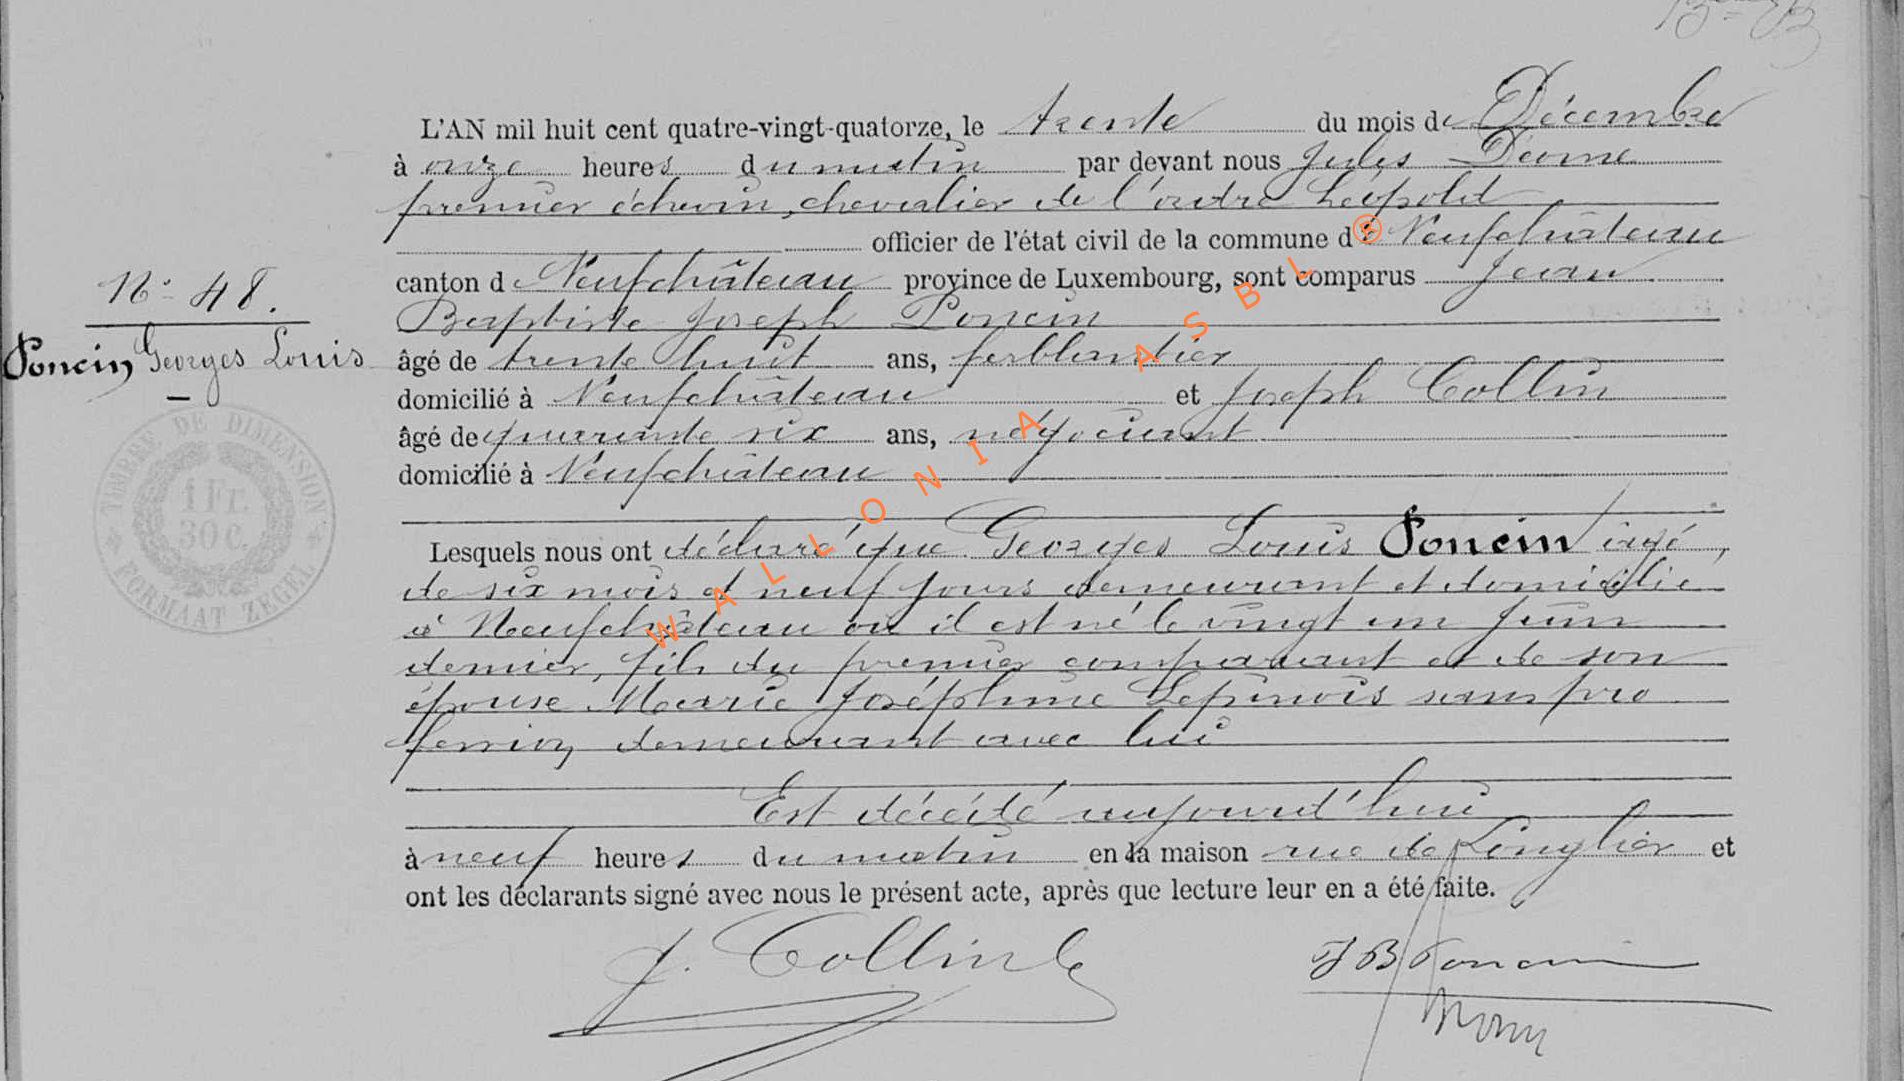 L'AN mil huit cent quatre-vingt-quatorze, le trente du mois de Décembre
à onze heures du matin par devant nous Jules
premier échevin, chevalier de l'ordre Léopold
officier de l'état civil de la commune de Neufchâteau
canton d Neufchâteau province de Luxembourg, sont comparus Jean
Baptiste Joseph Poncin
âgé de trente huit ans, ferblantier
domicilié à Neufchâteau et Joseph Collin
âgé de quarante six ans, négociant
domicilié à Neufchâteau
N° 48.
Poncin Georges Louis
TIMBRE DE DIMENSION
1 Fr.
30 C.
FORMAAT ZEGEL
Lesquels nous ont déclaré que Georges Louis Poncin âgé,
de six mois et neuf jours demeurant et domicilié
à Neufchâteau où il est né le vingt un Juin
dernier, fils du premier comparant et de son
épouse Marie Joséphine Lepinois sans pro
fession, demeurant avec lui
Est décédé aujourd'hui
à neuf heures du matin en la maison rue de Longlier et
ont les déclarants signé avec nous le présent acte, après que lecture leur en a été faite.
J. Collin
J B Poncin
WALLONIA ASBL ®